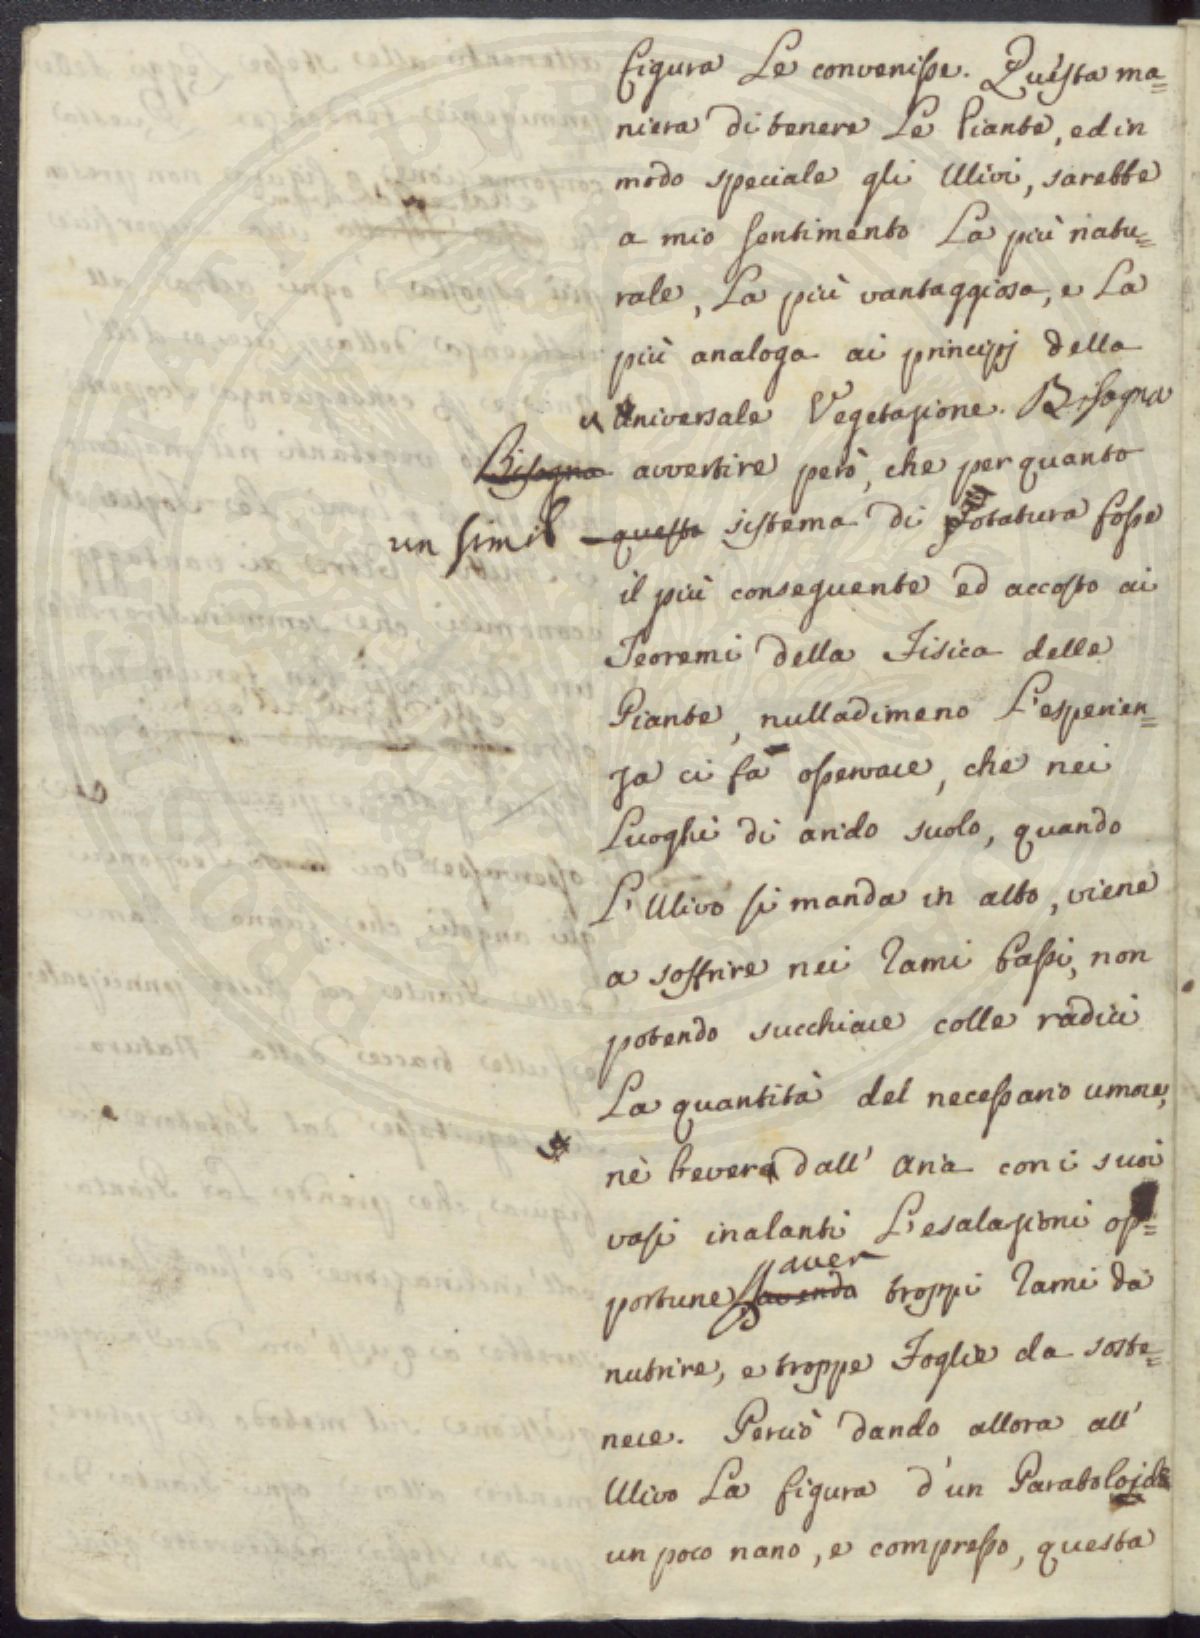 figura Le convenisse. Questa ma=
niera di tenere Le Piante, ed in
modo speciale gli Ulivi, sarebbe
a mio sentimento La più natu=
rale, La più vantaggiosa, e La
più analoga ai principj della
universale Vegetazione. Bisogna
Bisogna avvertire però, che per quanto
un simil questo sistema di Potatura fosse
il più conseguente ed accosto ai
Teoremi della Fisica delle
Piante, nulladimeno L'esperien=
za ci fa osservare, che nei
Luoghi di arido suolo, quando
L'Ulivo si manda in alto, viene
a soffrire nei rami bassi, non
potendo succhiare colle radici
La quantità del necessario umore,
nè bevere dall' aria con i suoi
vasi inalanti L'esalazioni op=
portune avendo aver troppi rami da
nutrire, e troppe Foglie da soste=
nere. Perciò dando allora all'
Ulivo La figura d'un Paraboloide
un poco nano, e compresso, questa